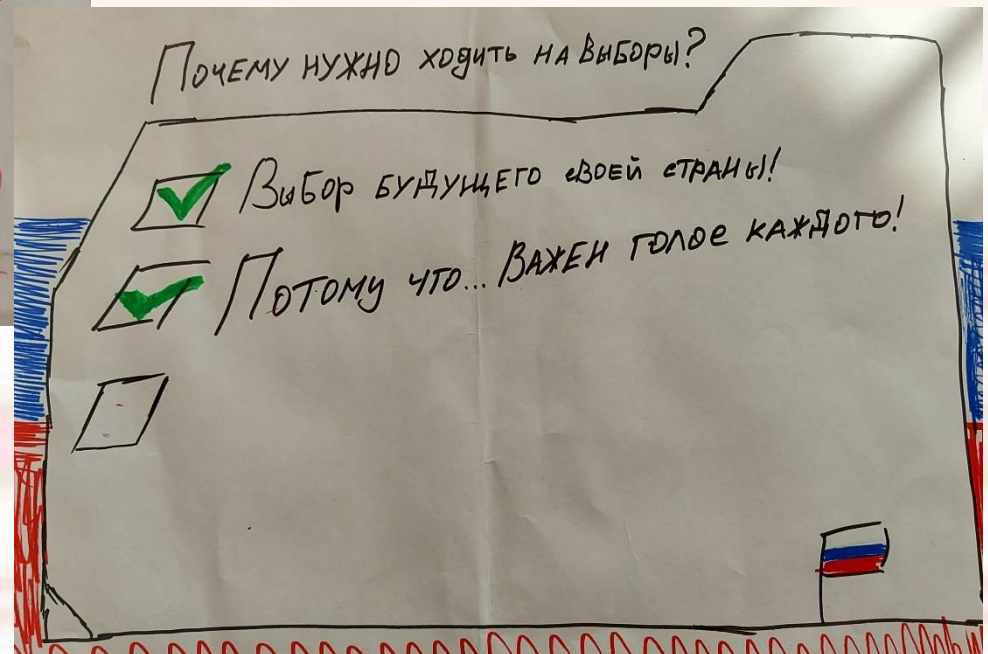 Почему нужно ходить на выборы?
Выбор будущего своей страны!
Потому что... Важен голос каждого!